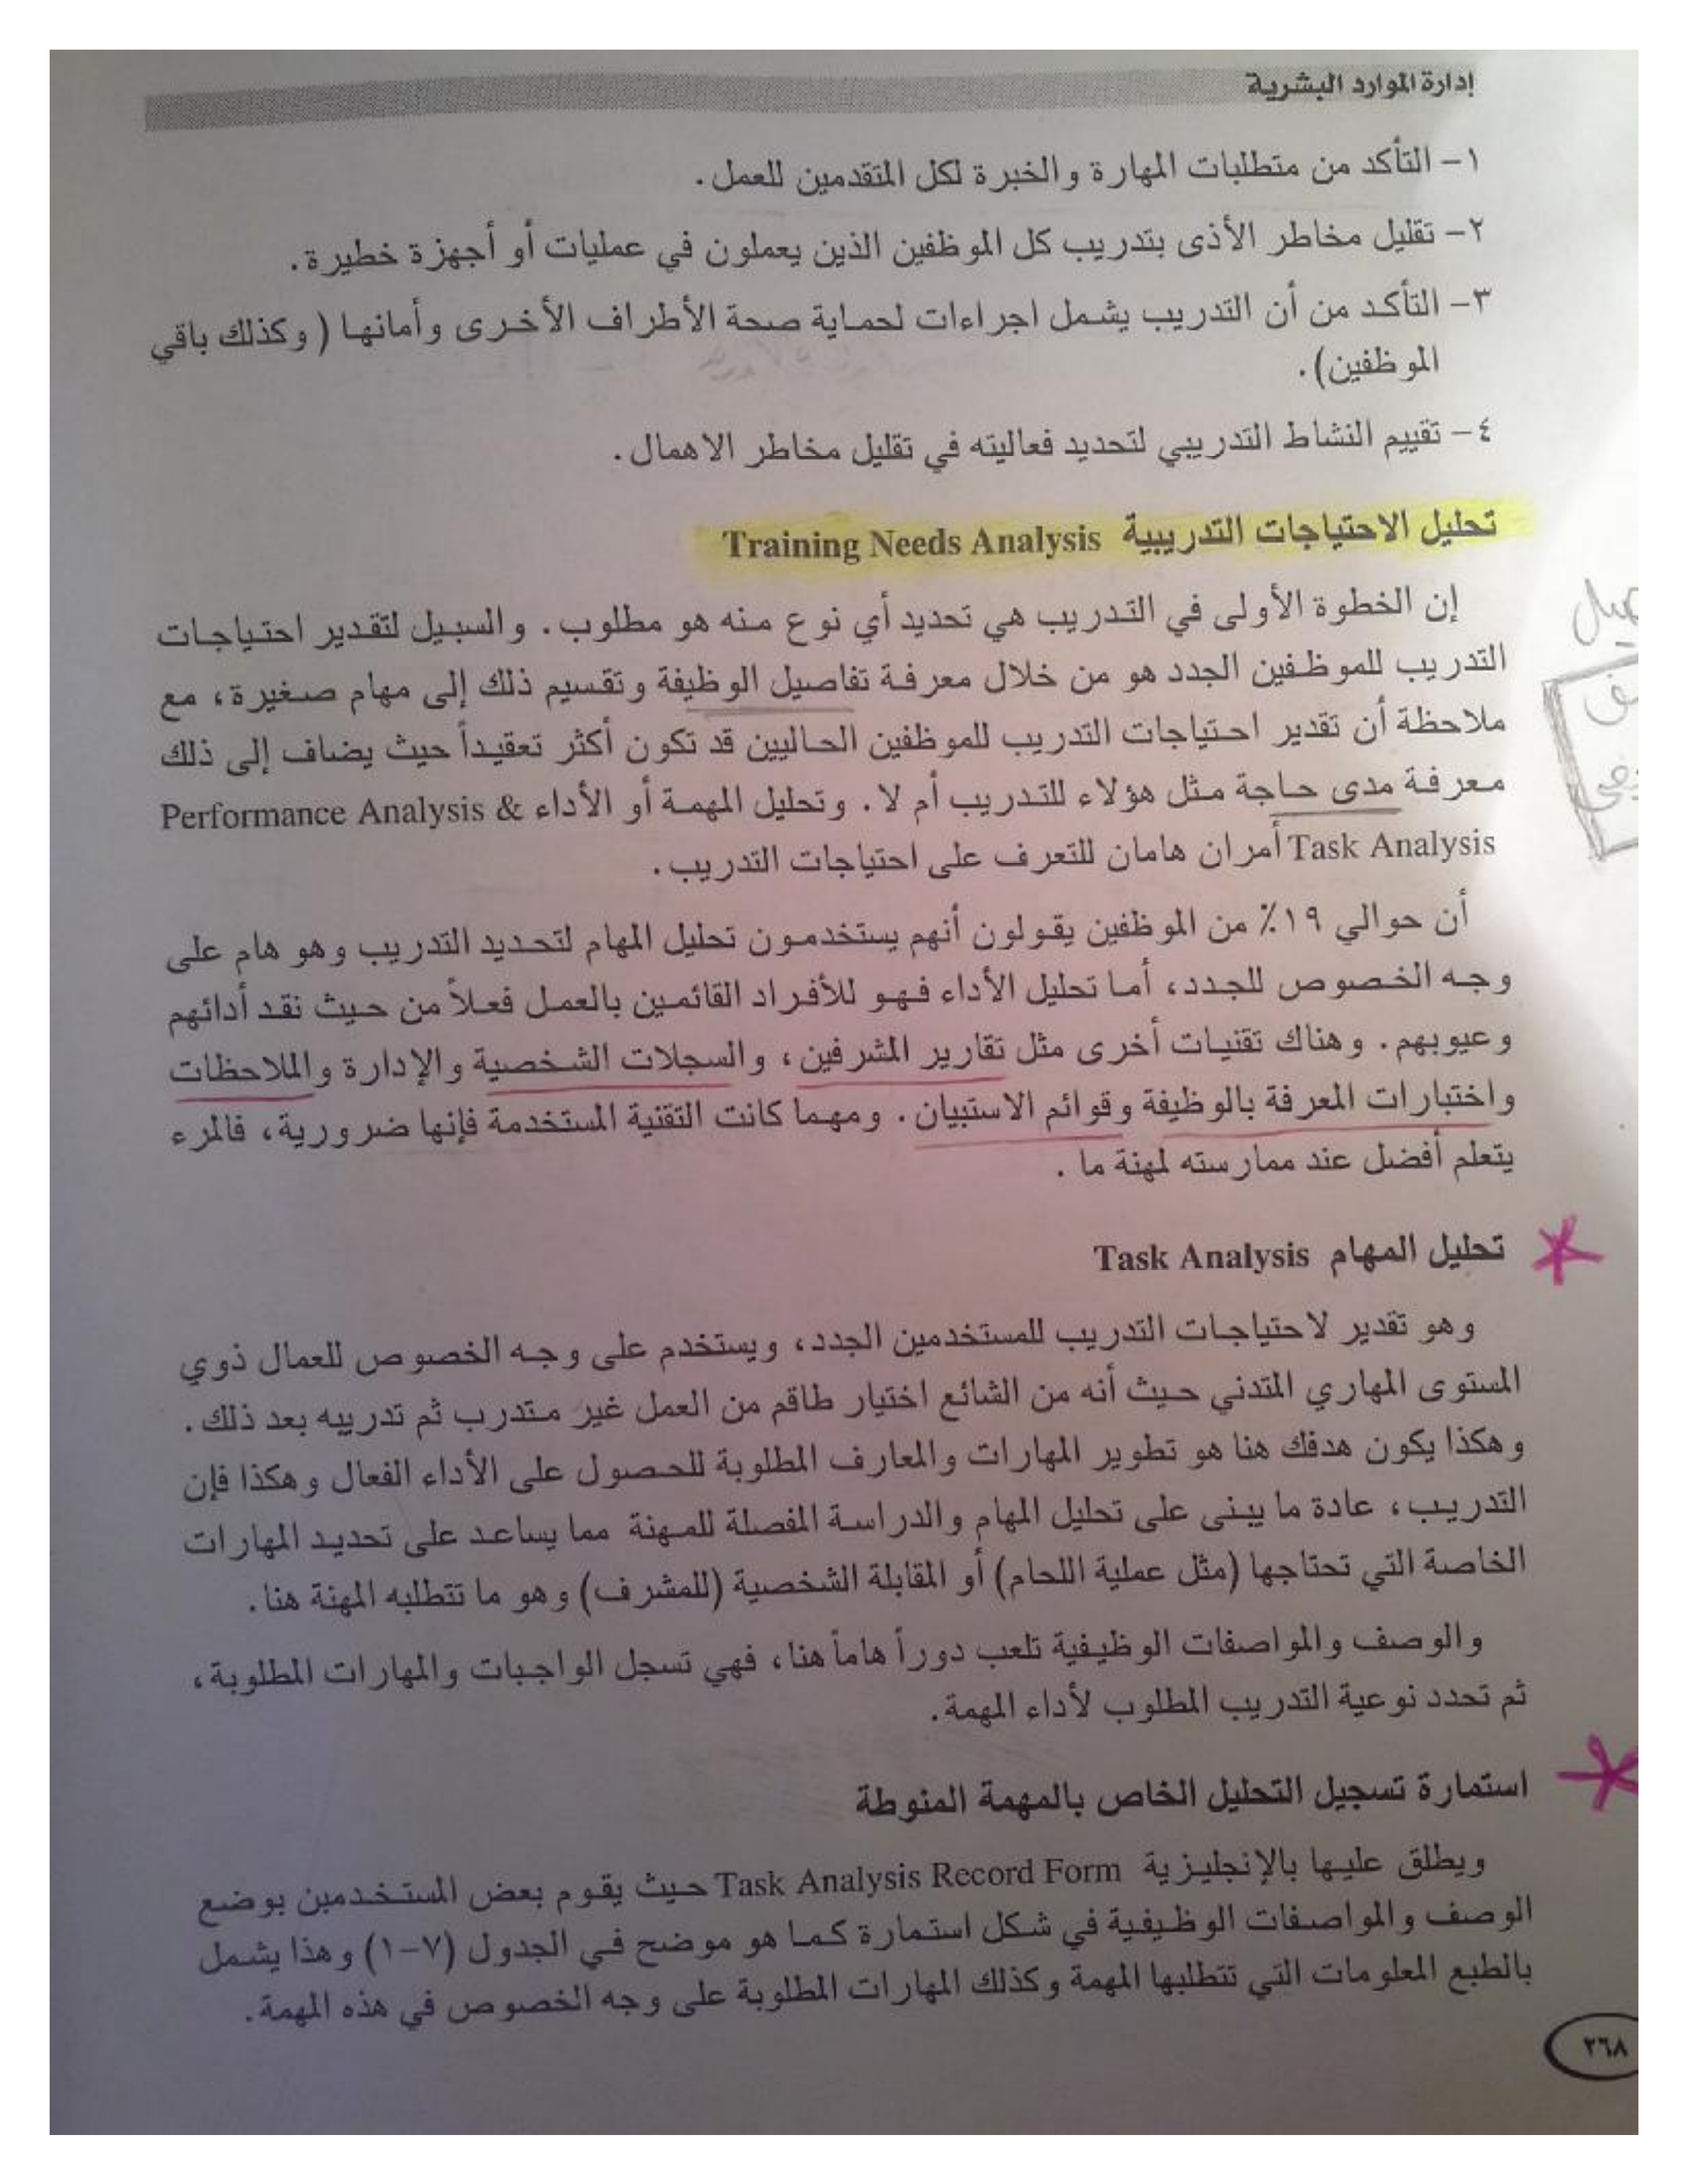 إدارة الموارد البشرية
١- التأكد من متطلبات المهارة والخبرة لكل المتقدمين للعمل.
٢- تقليل مخاطر الأذى بتدريب كل الموظفين الذين يعملون في عمليات أو أجهزة خطيرة.
٣- التأكد من أن التدريب يشمل اجراءات لحماية صحة الأطراف الأخرى وأمانها ( وكذلك باقي
الموظفين).
٤- تقييم النشاط التدريبي لتحديد فعاليته في تقليل مخاطر الاهمال.
تحليل الاحتياجات التدريبية Training Needs Analysis
إن الخطوة الأولى في التدريب هي تحديد أي نوع منه هو مطلوب. والسبيل لتقدير احتياجات
التدريب للموظفين الجدد هو من خلال معرفة تفاصيل الوظيفة وتقسيم ذلك إلى مهام صغيرة، مع
ملاحظة أن تقدير احتياجات التدريب للموظفين الحاليين قد تكون أكثر تعقيداً حيث يضاف إلى ذلك
معرفة مدى حاجة مثل هؤلاء للتدريب أم لا. وتحليل المهمة أو الأداء Performance Analysis &
Task Analysis أمران هامان للتعرف على احتياجات التدريب.
أن حوالي ١٩٪ من الموظفين يقولون أنهم يستخدمون تحليل المهام لتحديد التدريب وهو هام على
وجه الخصوص للجدد، أما تحليل الأداء فهو للأفراد القائمين بالعمل فعلاً من حيث نقد أدائهم
وعيوبهم. وهناك تقنيات أخرى مثل تقارير المشرفين، والسجلات الشخصية والإدارة والملاحظات
واختبارات المعرفة بالوظيفة وقوائم الاستبيان. ومهما كانت التقنية المستخدمة فإنها ضرورية، فالمرء
يتعلم أفضل عند ممارسته لمهنة ما .
تحليل المهام Task Analysis
وهو تقدير لاحتياجات التدريب للمستخدمين الجدد، ويستخدم على وجه الخصوص للعمال ذوي
المستوى المهاري المتدني حيث أنه من الشائع اختيار طاقم من العمل غير متدرب ثم تدريبه بعد ذلك.
وهكذا يكون هدفك هنا هو تطوير المهارات والمعارف المطلوبة للحصول على الأداء الفعال وهكذا فإن
التدريب، عادة ما يبنى على تحليل المهام والدراسة المفصلة للمهنة مما يساعد على تحديد المهارات
الخاصة التي تحتاجها (مثل عملية اللحام) أو المقابلة الشخصية (للمشرف) وهو ما تتطلبه المهنة هنا.
والوصف والمواصفات الوظيفية تلعب دوراً هاماً هنا، فهي تسجل الواجبات والمهارات المطلوبة،
ثم تحدد نوعية التدريب المطلوب لأداء المهمة.
استمارة تسجيل التحليل الخاص بالمهمة المنوطة
ويطلق عليها بالإنجليزية Task Analysis Record Form حيث يقوم بعض المستخدمين بوضع
الوصف والمواصفات الوظيفية في شكل استمارة كما هو موضح في الجدول (٧-١) وهذا يشمل
بالطبع المعلومات التي تتطلبها المهمة وكذلك المهارات المطلوبة على وجه الخصوص في هذه المهمة.
٢٦٨